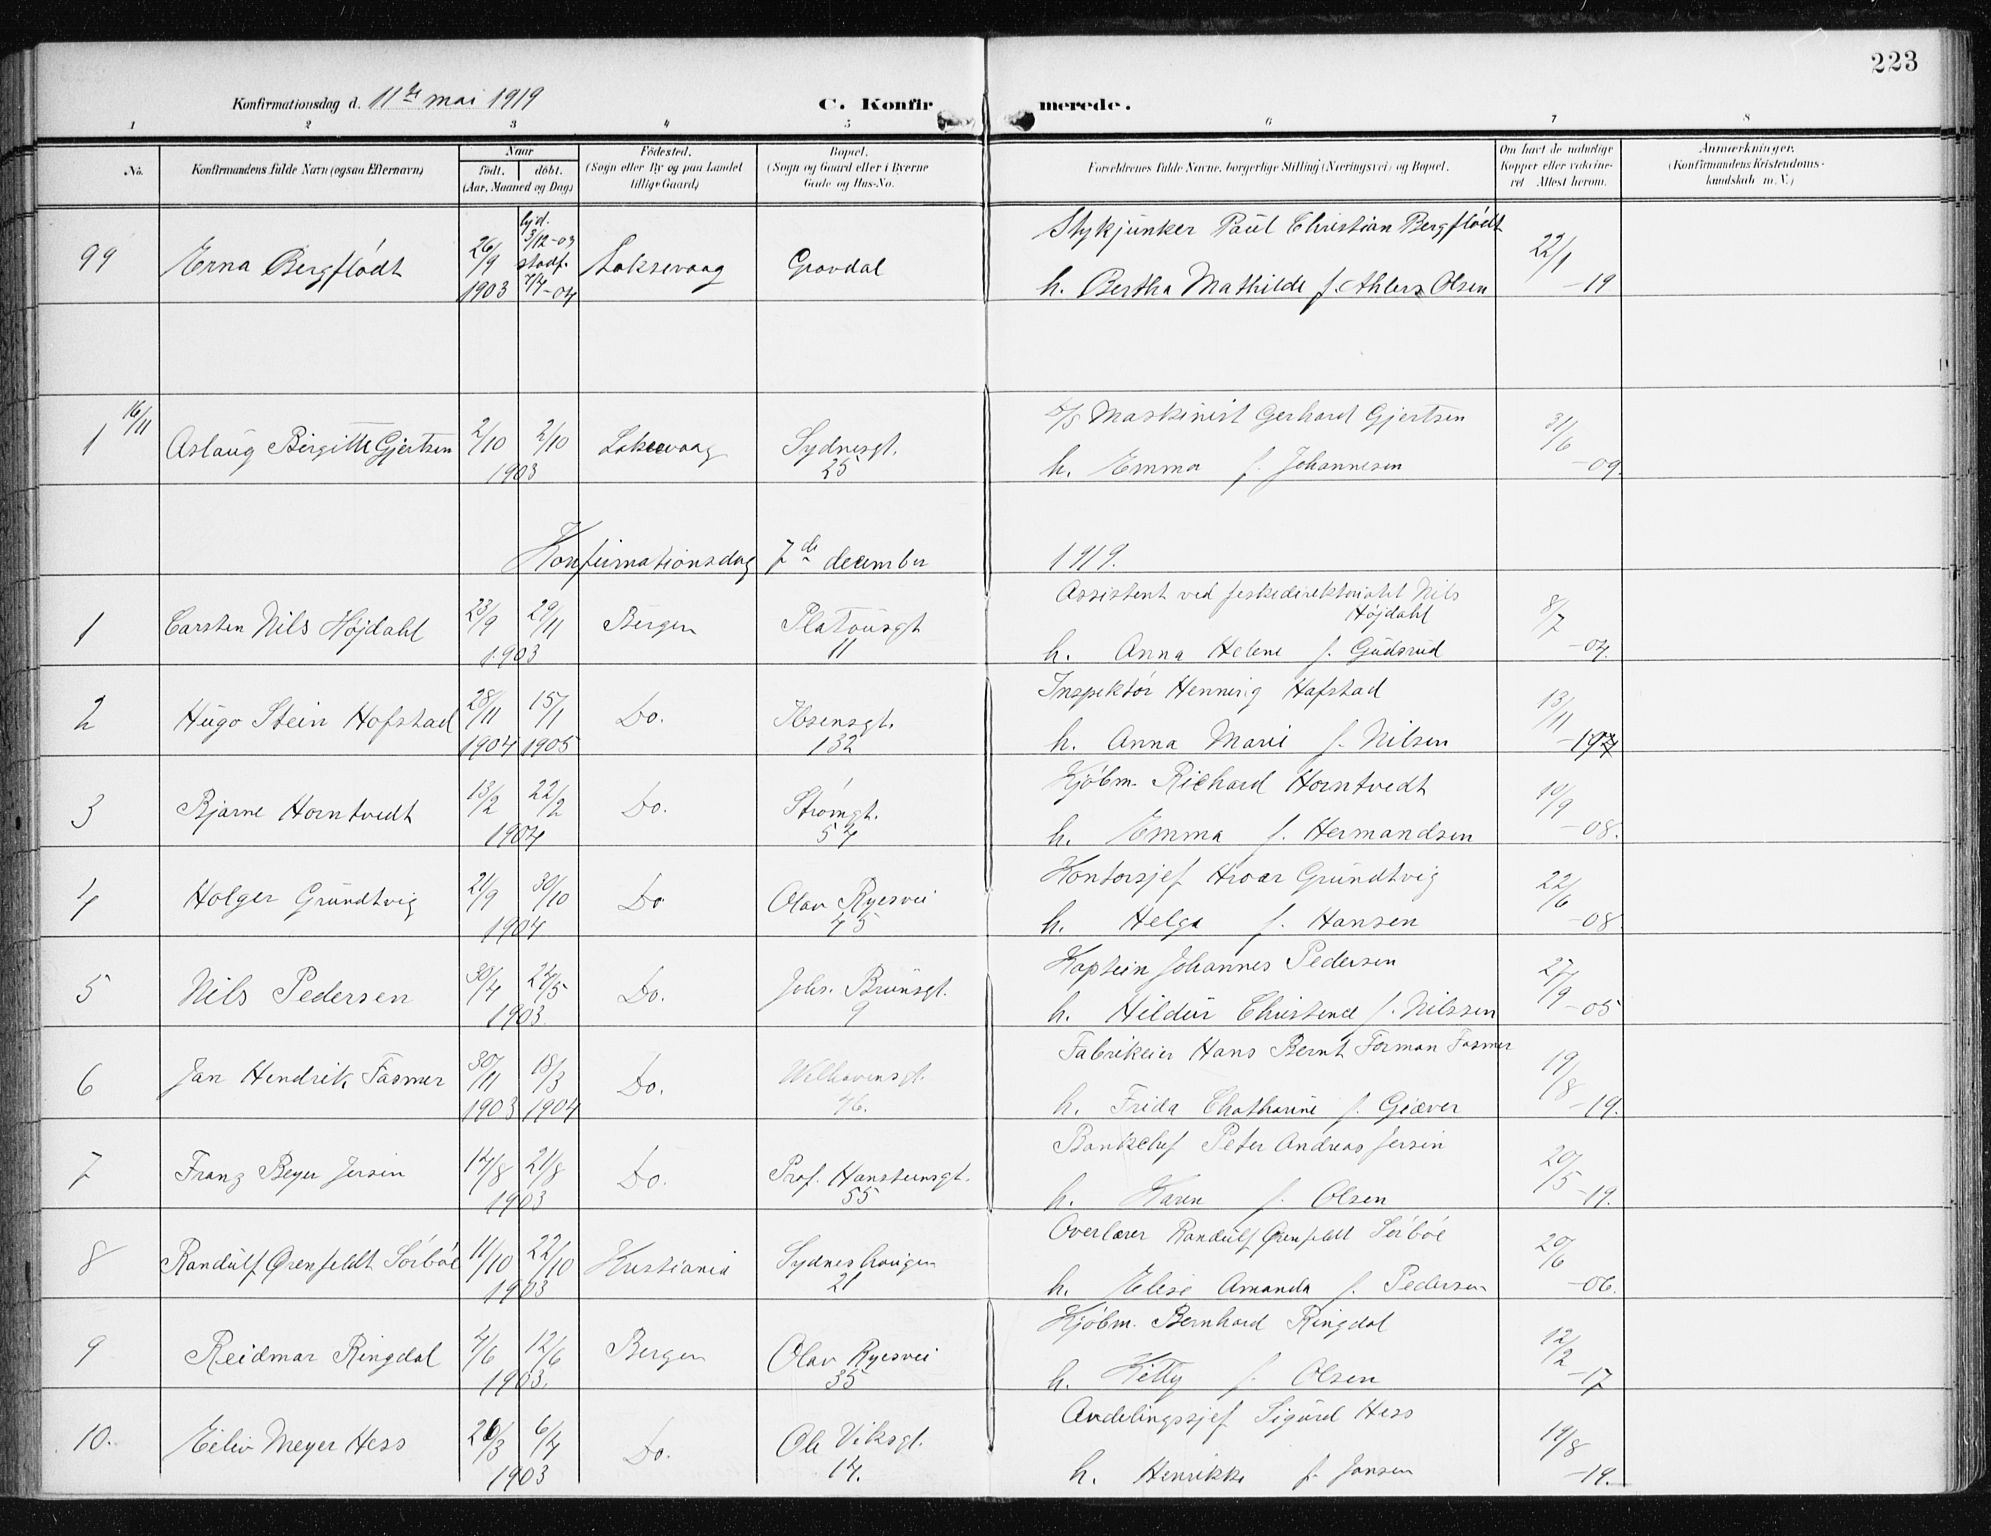 223
Konfirmationsdag d. 11te mai 1919 C. Konfirmerede.
1 2 3 4 5 6 7 8
No. Konfirmandens fulde Navn (ogsaa Efternavn) Naar født. døbt. (Aar, Maaned og Dag) Fødested. (Sogn eller By og paa Landet tillige Gaard) Bopæl. (Sogn og Gaard eller i Byerne Gade og Hus-No. Forældrenes fulde Navne, borgerlige Stilling (Næringsvei) og Bopæl. Om havt de naturlige Kopper eller vaccineret Attest herom. Anmærkninger. (Konfirmandens Kristendomskundskab m. V.)
99 Erna Bergflødt 26/9 1903 hjd. 3/12-03 stadf. 7/4-04 Laksevaag Gravdal Stykjunker Paul Christian Bergflødt 22/1 -19
h. Bertha Mathilde f. Ahlers Olsen
16/11
1 Aslaug Birgitte Gjertsen 2/10 2/10 1903 Laksevaag Sydnesgt. 25 Maskinist Gerhard Gjertsen 31/6 -09.
h. Emma f. Johannesen
Konfirmationsdag 7de december 1919.
1 Carsten Nils Højdahl 23/9 29/11 1903 Bergen Platousgt 11 Assistent ved fiskedirektoriatet Nils Højdahl 8/7 -04.
h. Anna Helene f. Gudsrud
2 Hugo Stein Hofstad 28/11 1904 15/1 1905 Do. Ibsensgt. 132 Inspektør Henning Hofstad 13/11
h. Anna Marie f. Nilsen
3 Bjarne Horntvedt 13/2 22/2 1904 Do. Strømgt. 54 Kjøbm. Richard Horntvedt 10/9 -08.
h. Emma f. Hermandsen
4 Holger Grundtvig 21/9 30/10 1904 Do Olav Ryesvei 45 Kontorsjef Hroar Grundtvig 22/6 -08
h. Helga f. Hansen
5 Nils Pedersen 30/4 24/5 1903 Do. Johs. Brunsgt. 9 Kaptein Johannes Pedersen 27/9 -05
h. Hildur Christence f. Nilssen
6 Jan Hendrik Fasmer 30/11 1903 18/3 1904 Do. Welhavensgt. 46. Fabrikeier Hans Bernt Forman Fasmer 19/8 -19.
h. Frida Chatharine f. Giæver
7 Franz Beyer Jersin 14/8 21/8 1903 Do. Prof. Hansteensgt. 55 Bankchef Peter Andreas Jersin 20/5 -19.
h. Karen f. Olsen
8 Randulf Ørenfeldt Sørbøe 11/10 22/10 1903 Kristiania Sydneshaugen 21 Overlærer Randulf Ørenfeldt Sørbøe 20/6 -06.
h. Elise Amanda f. Pedersen
9 Reidmar Ringdal 4/6 12/6 1903. Bergen Olav Ryesvei 35 Kjøbm. Bernhard Ringdal 12/2 -17
h. Kitty f. Olsen
10. Eiliv Meyer Hess 26/3 6/4 1903 Do. Ole Viksgt. 14. Avdelingssjef Sigurd Hess 19/8 -19.
h. Henrikke f. Jansen